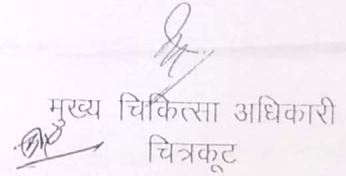 मुख्य चिकित्सा अधिकारी
चित्रकूट